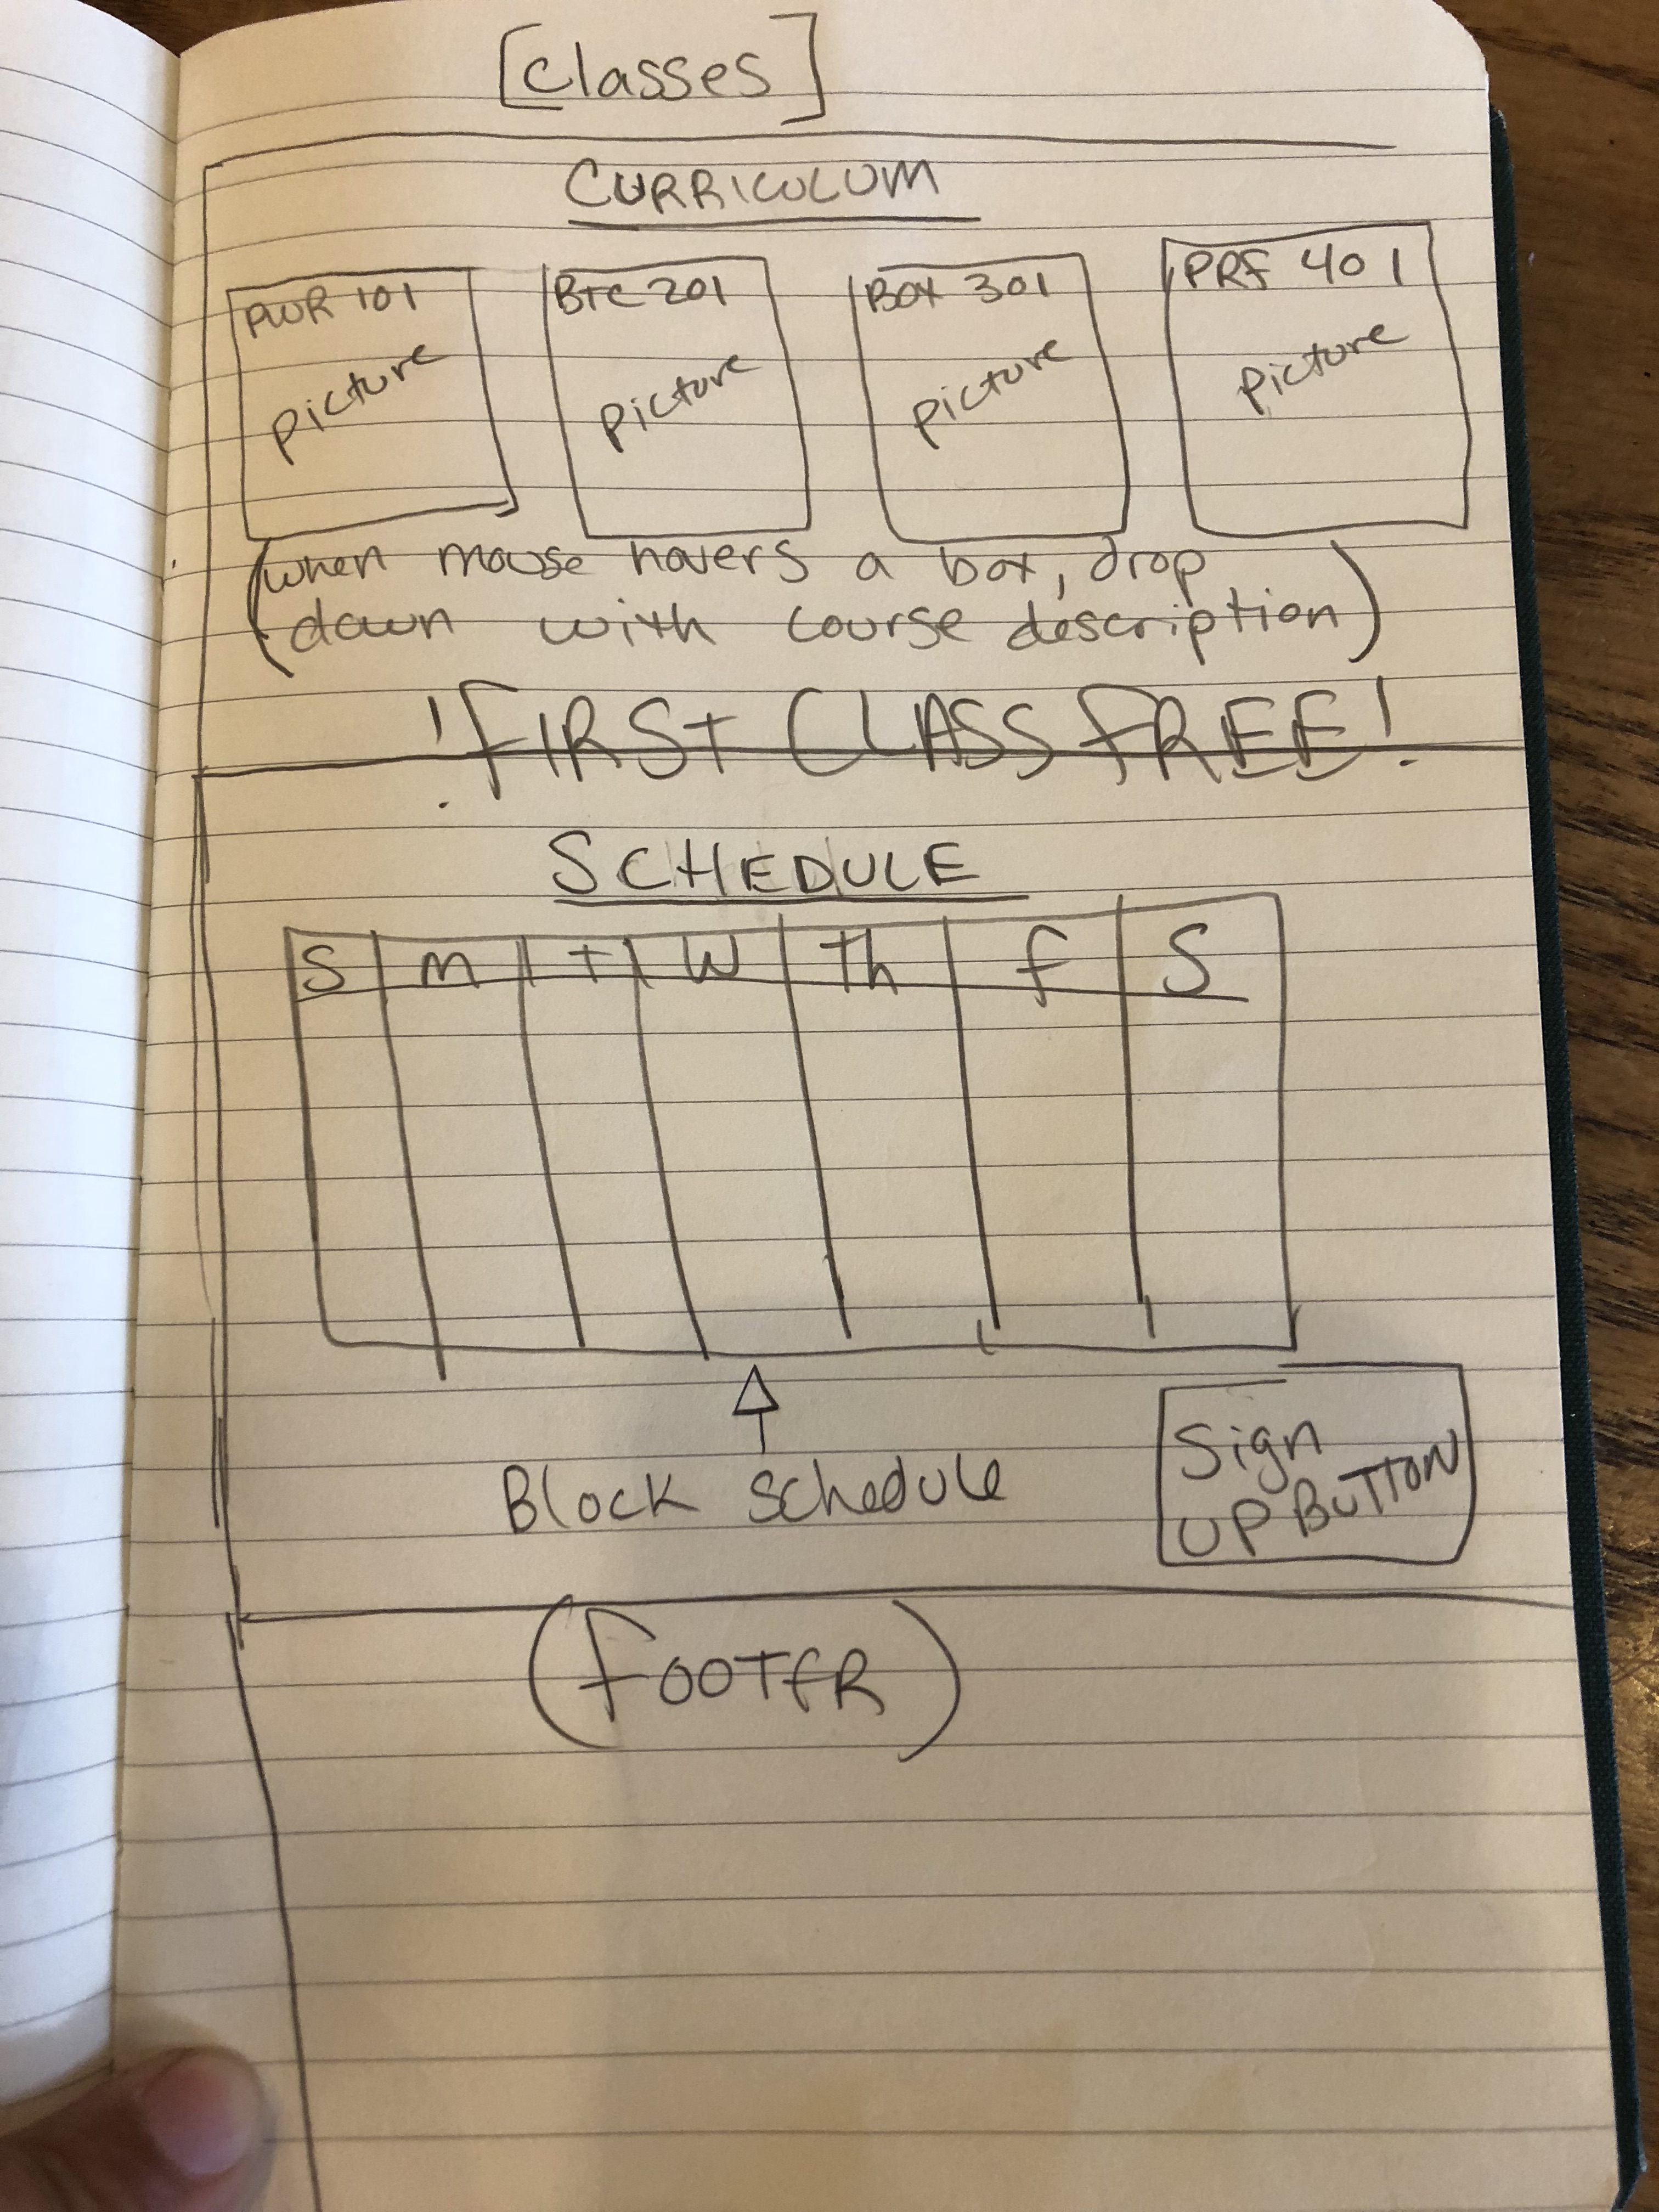 [Classes]
CURRICULUM
PWR 101
BTC 201
BOX 301
PRF 401
picture
picture
picture
picture
(when mouse hovers a box, drop
down with course description)
!FIRST CLASS FREE!
SCHEDULE
S M T W Th F S
Block schedule
Sign
UP BUTTON
(FOOTER)